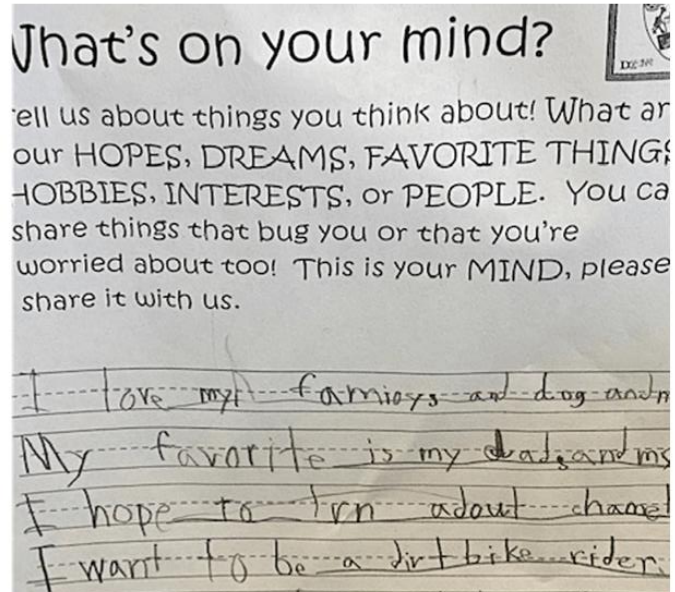 What's on your mind?
ell us about things you think about! What ar
our HOPES, DREAMS, FAVORITE THINGS
HOBBIES, INTERESTS, or PEOPLE. You ca
share things that bug you or that you're
worried about too! This is your MIND, please
share it with us.
I love my famioys and dog and m
My favorite is my dads and ms
I hope to lrn adout chamel
I want to be a dirt bike rider.